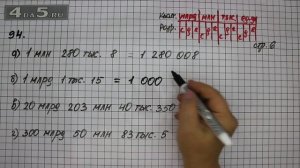 4a5.ru
94.
Класс. млрд млн тыс. ед.
Разр. с д е с д е с д е с д е
стр. 6
а) 1 млн 280 тыс. 8 = 1 280 008
б) 1 млрд 1 тыс. 15 = 1 000
в) 20 млрд 203 млн 40 тыс. 350
г) 300 млрд 50 млн 83 тыс. 5